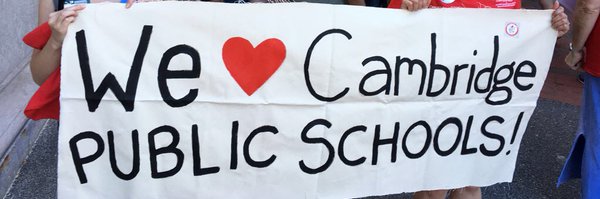 We ❤ Cambridge
PUBLIC SCHOOLS!